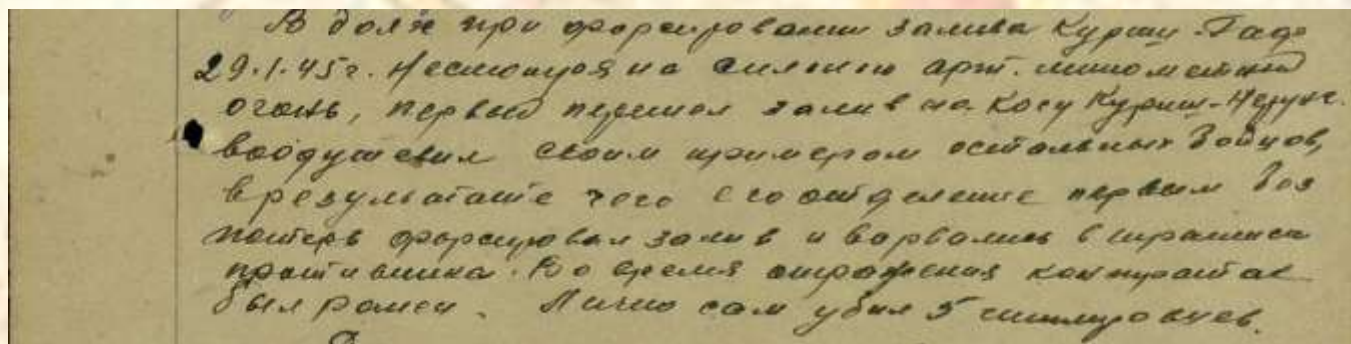 В бою при форсировании залива Куриш-Гаф
29.1.45г. Несмотря на сильный арт. минометный
огонь, первый перешел залив на косу Куриш-Нерунг.
воодушевил своим примером остальных бойцов,
в результате чего его отделение первым без
потерь форсировал залив и ворвались в траншеи
противника. Во время отражения контратак
был ранен. Лично сам убил 5 гитлеровцев.